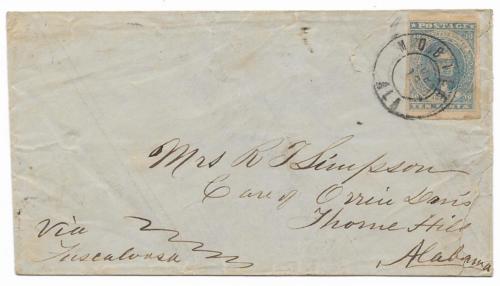 POSTAGE
TEN CENTS
MOBILE
ALA
Mrs R T Simpson
Care of Orrin Davis
Thorne Hill
Alabama
Via
Tuscaloosa